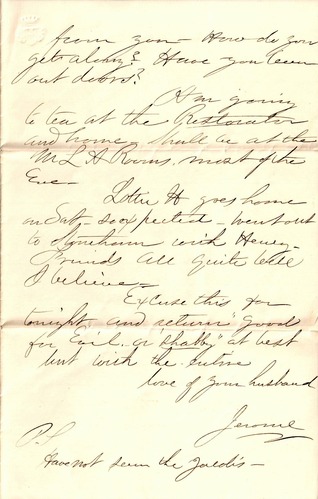 from you - How do you
get along? Have you been
out doors?
Am going
to tea at the Restorator
and home - Shall be at the
M L A Rooms. most of the
Eve -
Lottie H goes home
on Sat - so expected - went out
to with Henry -
Friends all quite well
I believe -
Excuse this for
tonight, and return "good
for Evil" or "shabby" at best
but with the entire
love of your husband
Jerome
P.S
Have not seen the